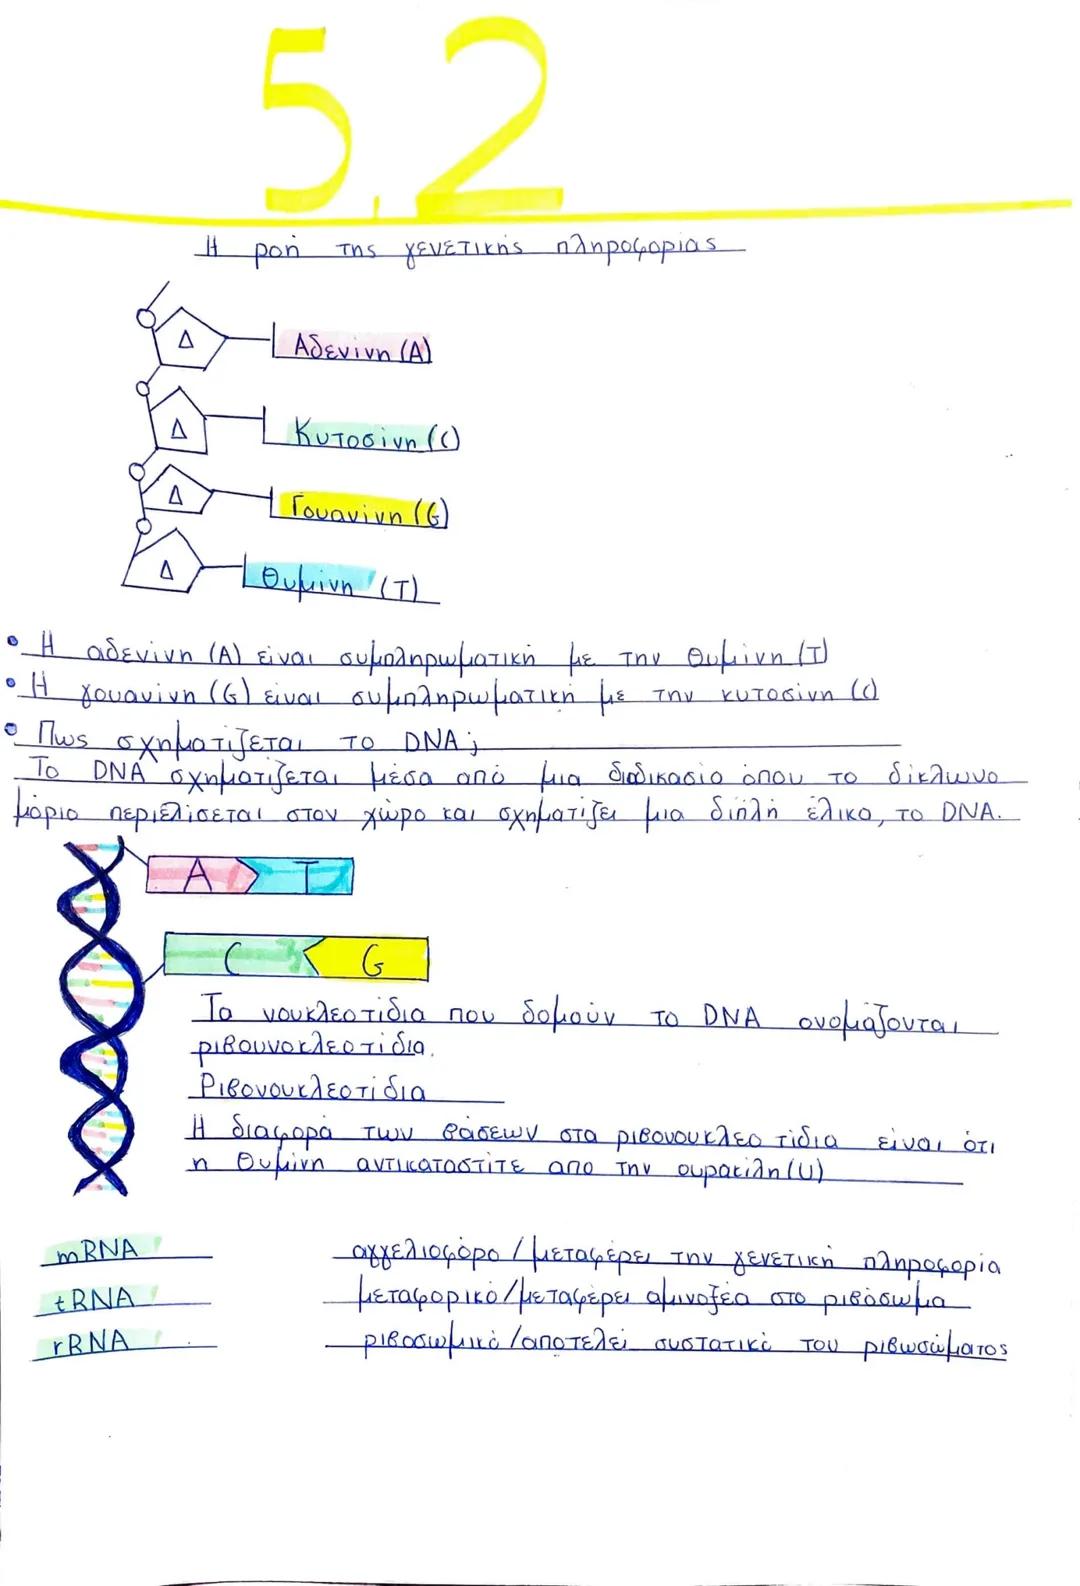 5.2
Η ροή της γενετικής πληροφορίας
Δ
Αδενίνη (A)
Δ
Κυτοσίνη (C)
Δ
Γουανίνη (G)
Δ
Θυμίνη (T)
• Η αδενίνη (A) είναι συμπληρωματική με την Θυμίνη (T)
• Η γουανίνη (G) είναι συμπληρωματική με την κυτοσίνη (C)
• Πως σχηματίζεται το DNA;
Το DNA σχηματίζεται μέσα από μια διαδικασία όπου το δίκλωνο
μόριο περιελίσεται στον χώρο και σχηματίζει μια διπλή έλικα, το DNA.
A T
C G
Τα νουκλεοτίδια που δομούν το DNA ονομάζονται
ριβουνοκλεοτίδια.
Ριβονουκλεοτίδια
Η διαφορά των βάσεων στα ριβονουκλεοτίδια είναι ότι
η Θυμίνη αντικαταστίτε απο την ουρακίλη (U)
mRNA αγγελιοφόρο / μεταφέρει την γενετική πληροφορία
tRNA μεταφορικό/μεταφέρει αμινοξέα στο ριβόσωμα
rRNA ριβοσωμικό /αποτελεί συστατικό του ριβωσώματος